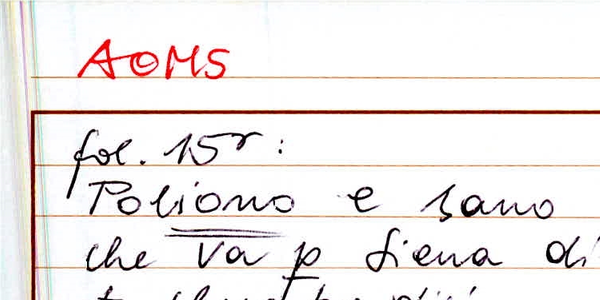 AOMS
fol. 15r:
Poliono e sano
che va p Siena di